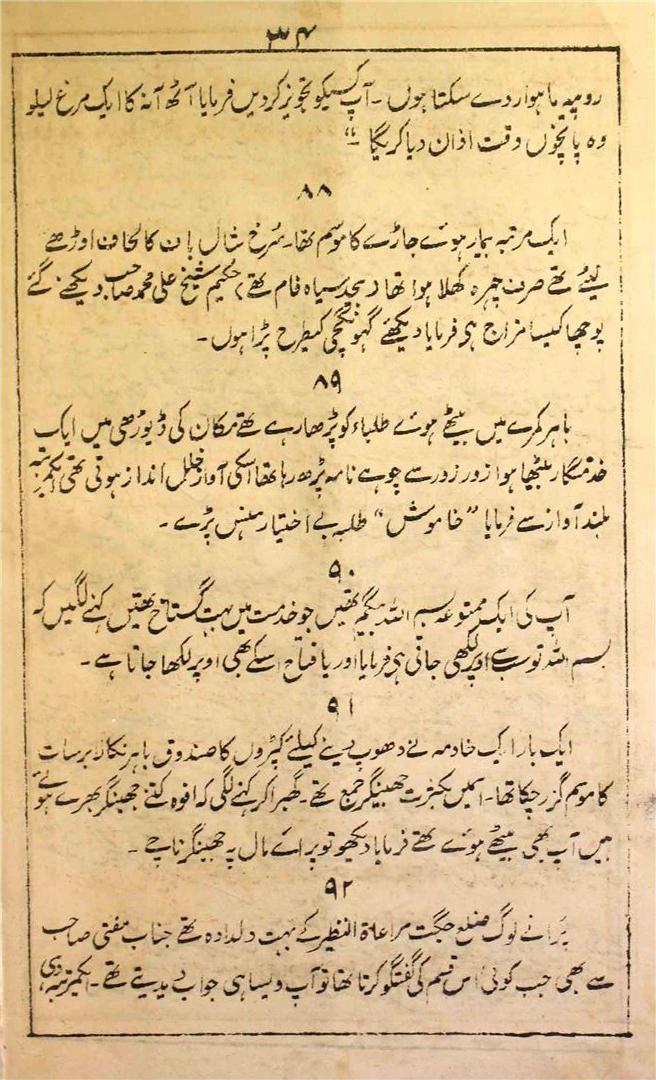 ۳۴
روپیہ ماہوار دے سکتا ہوں ۔ آپ کسیکو تجویز کردیں فرمایا آٹھ آنہ کا ایک مرغ لیلو
وہ پانچوں وقت اذان دیا کریگا ۔“
۸۸
ایک مرتبہ بیمار ہوئے جاڑے کا موسم تھا۔ سُرخ شال باف کا لحاف اوڑھے
لیٹے تھے صرف چہرہ کھلا ہوا تھا (بیحد سیاہ فام تھے) حکیم شیخ علی محمد صاحب دیکھنے گئے
پوچھا کیسا مزاج ہی فرمایا دیکھئے گہونگچی کیطرح پڑا ہوں ۔
۸۹
باہر کمرے میں بیٹھے ہوئے طلباء کو پڑھا رہے تھے مکان کی ڈیوڑھی میں ایک
خدمتگار بیٹھا ہوا زور زور سے چوہے نامہ پڑھ رہا تھا اسکی آواز خلل انداز ہوتی تھی ایکمرتبہ
بلند آواز سے فرمایا ”خاموش“ طلبہ بے اختیار ہنس پڑے ۔
۹۰
آپ کی ایک ممتوعہ بسم اللہ بیگم تھیں جو خدمت میں بہت گستاخ تھیں کہنے لگیں کہ
بسم اللہ تو سب سے اوپر لکھی جاتی ہی فرمایا اور یا فتاح اسکے بھی اوپر لکھا جاتا ہے ۔
۹۱
ایک بار ایک خادمہ نے دھوپ دینے کیلئے کپڑوں کا صندوق باہر نکالا برسات
کا موسم گزر چکا تھا ۔ اسمیں بکثرت جھینگر جمع تھے ۔ گھبرا کر کہنے لگی کہ افوہ کتنے جھینگر بھرے ہوئے
ہیں آپ بھی بیٹھے ہوئے تھے فرمایا دیکھو تو پرائے مال پہ جھینگر ناچے ۔
۹۲
پرانے لوگ ضلع جگت مراعاۃ النظیر کے بہت دلدادہ تھے جناب مفتی صاحب
سے بھی جب کوئی اس قسم کی گفتگو کرتا تھا تو آپ ویسا ہی جواب دیدیتے تھے ۔ ایکمرتبہ